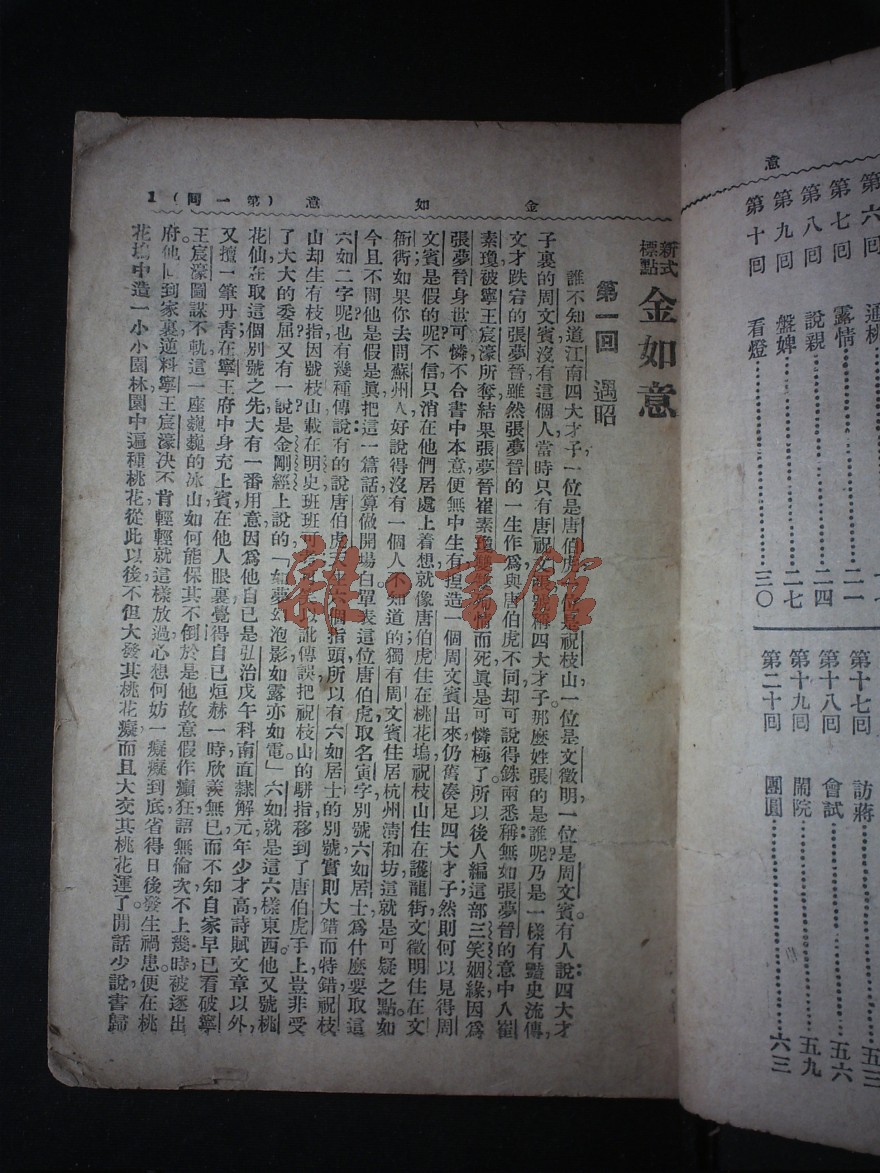 意
第六回 通桃
第七回 露情……二一
第八回 說親……二四
第九回 盤婢……二七
第十回 看燈……三〇
第十七回 訪蔣……五三
第十八回 會試……五六
第十九回 鬧院……五九
第二十回 團圓……六三
金如意 (第一回) 1
新式標點 金如意
第一回 遇昭
誰不知道江南四大才子,一位是唐伯虎,一位是祝枝山,一位是文徵明,一位是周文賓。有人說:四大才
子裏的周文賓沒有這個人,當時只有唐祝文張稱四大才子。那麼姓張的是誰呢?乃是一樣有豔史流傳
文才跌宕的張夢晉,雖然張夢晉的一生作爲與唐伯虎不同,却可說得銖兩悉稱,無如張夢晉的意中人崔
素瓊被寧王宸濠所奪,結果張夢晉崔素瓊雙雙殉情而死,眞是可憐極了。所以後人編這部三笑姻緣,因爲
張夢晉身世可憐,不合書中本意,便無中生有,揑造一個周文賓出來,仍舊湊足四大才子;然則何以見得周
文賓是假的呢?不信只消在他們居處上着想,就像唐伯虎住在桃花塢,祝枝山住在護龍街,文徵明住在文
衙衖,如果你去問蘇州人,好說得沒有一個人不知道的;獨有周文賓住居杭州淸和坊,這就是可疑之點。如
今且不問他是假是眞,把這一篇話算做開場白,單表這位唐伯虎取名寅字,別號六如居士,爲什麼要取這
六如二字呢?也有幾種傳說:有的說唐伯虎天生六個指頭,所以有六如居士的別號,實則大錯而特錯,祝枝
山却生有枝指,因號枝山,載在明史,班班可考,以訛傳誤,把祝枝山的駢指移到了唐伯虎手上,豈非受
了大大的委屈?又有一說,是金剛經上說的「如夢幻泡影,如露亦如電。」六如就是這六樣東西。他又號桃
花仙,在取這個別號之先,大有一番用意,因爲他自己是弘治戊午科南直隸解元,年少才高,詩賦文章以外,
又擅一筆丹靑,在寧王府中身充上賓,在他人眼裏覺得自己烜赫一時,欣羨無已,而不知自家早已看破寧
王宸濠圖謀不軌,這一座巍巍的冰山如何能保其不倒,於是他故意假作癲狂,語無倫次,不上幾時,被逐出
府。他回到家裏,逆料寧王宸濠決不肯輕輕就這樣放過,心想何妨一癡癡到底,省得日後發生禍患。便在桃
花塢中造一小小園林,園中遍種桃花,從此以後,不但大發其桃花癡,而且大交其桃花運了。閒話少說,書歸
雜·書館